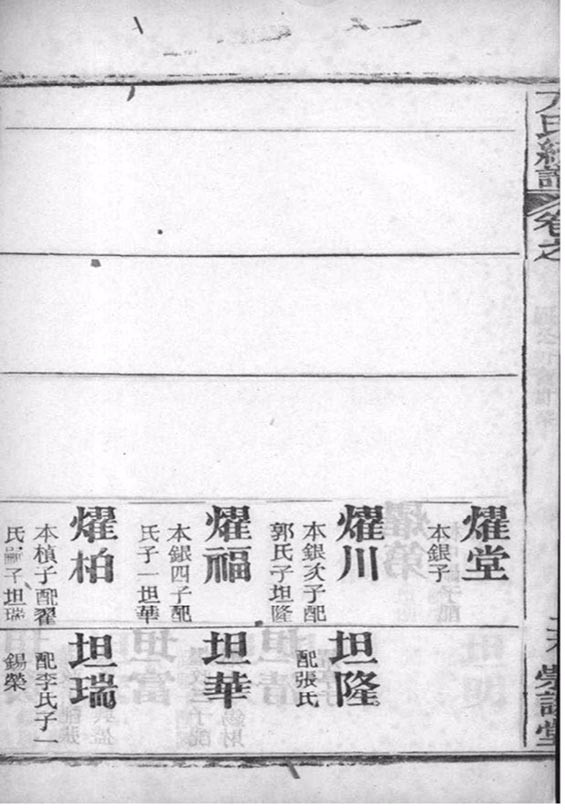 氏統譜
卷之
燿堂
本銀子
燿川
本銀次子配
郭氏子坦隆
燿福
本銀四子配
氏子一坦華
燿柏
本楨子配翟
氏子坦瑞
坦隆
配張氏
坦華
坦瑞
配李氏子一
錫榮